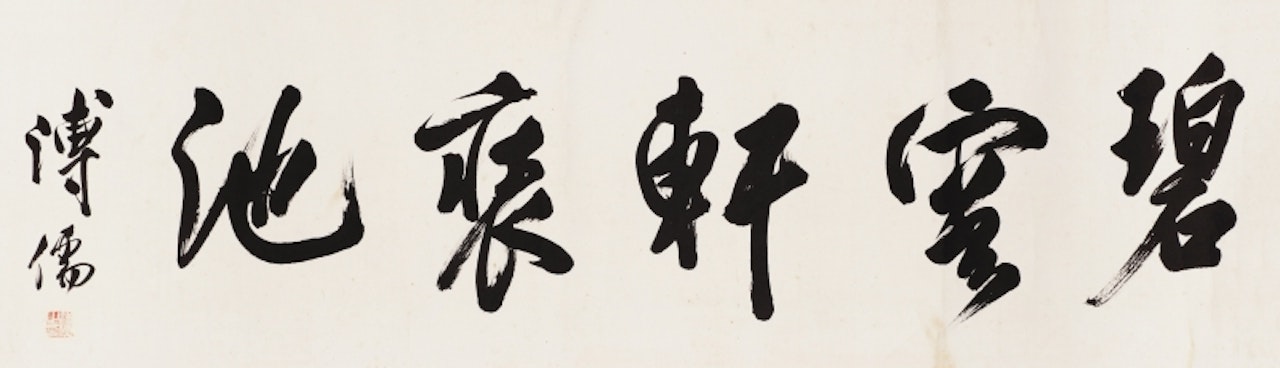 碧雲軒裝池
溥儒